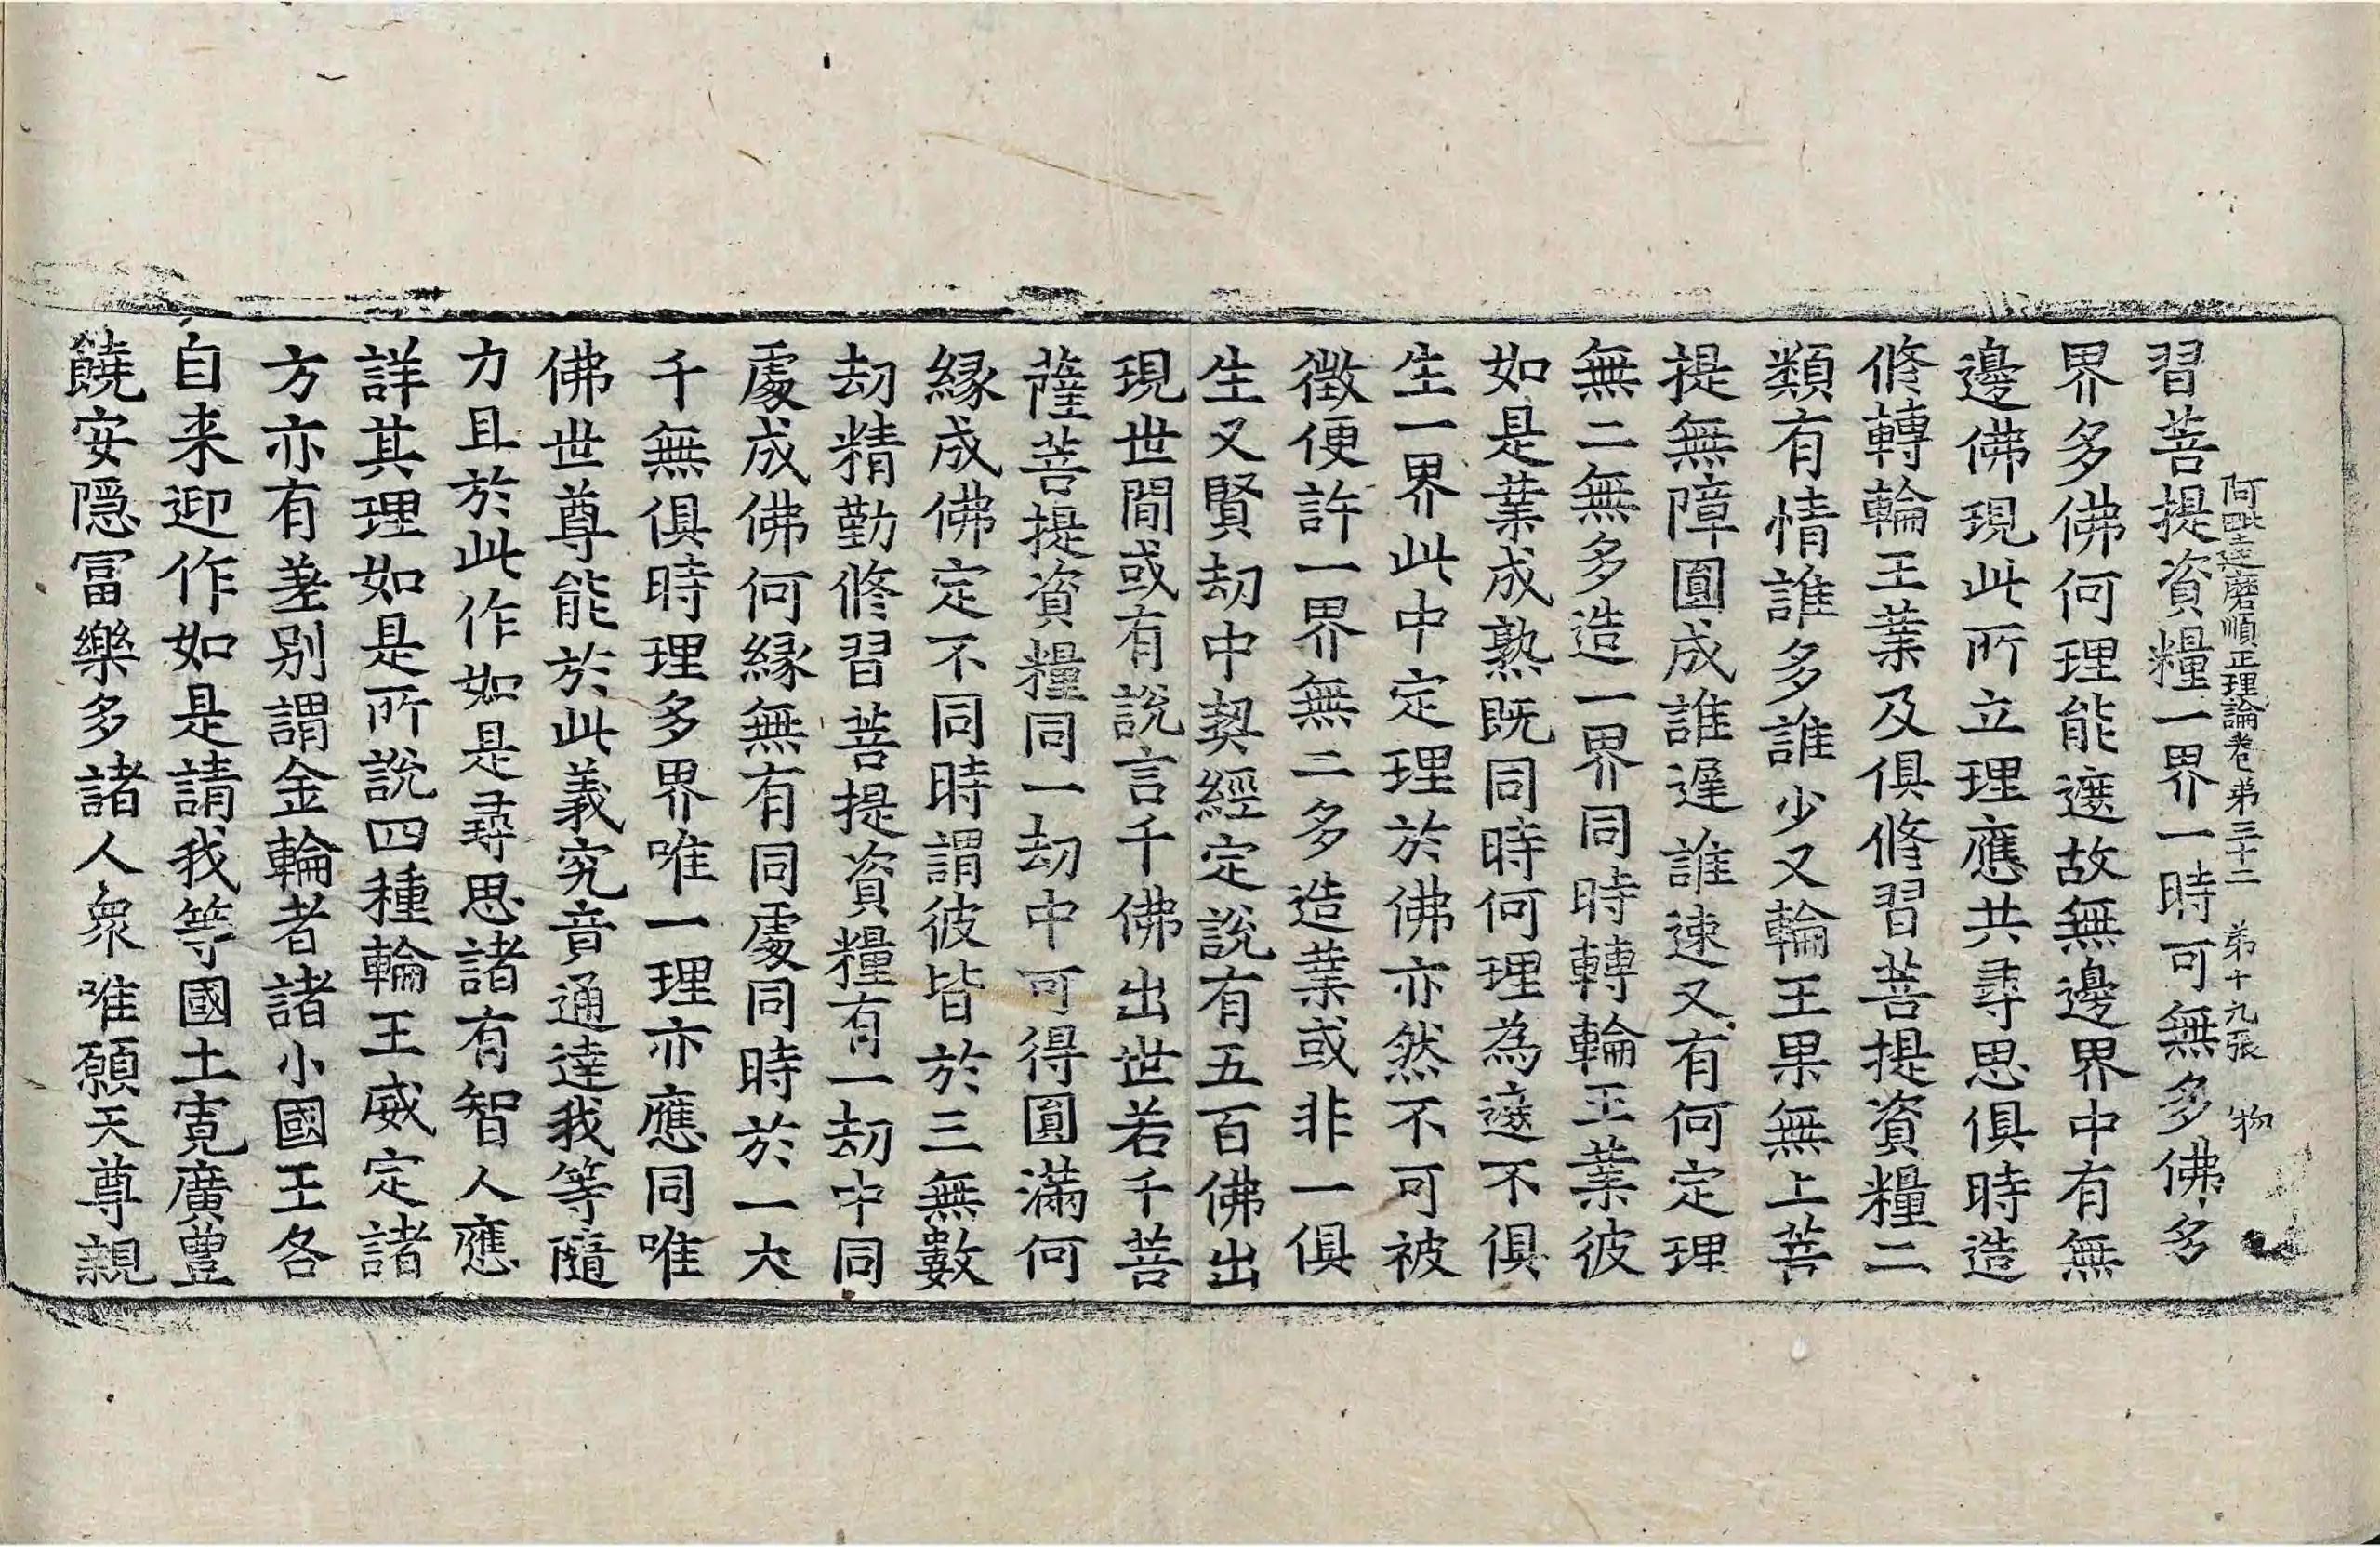 阿毗達磨順正理論卷弟三十二 弟十九張 物
習菩提資糧一界一時可無多佛多
界多佛何理能遮故無邊界中有無
邊佛現此所立理應共尋思俱時造
修轉輪王業及俱修習菩提資糧二
類有情誰多誰少又輪王果無上菩
提無障圓成誰遲誰速又有何定理
無二無多造一界同時轉輪王業彼
如是業成熟既同時何理為遮不俱
生一界此中定理於佛亦然不可被
徵便許一界無二多造業或非一俱
生又賢劫中契經定說有五百佛出
現世間或有說言千佛出世若千菩
薩菩提資糧同一劫中可得圓滿何
緣成佛定不同時謂彼皆於三無數
劫精勤修習菩提資糧有一劫中同
處成佛何緣無有同處同時於一大
千無俱時理多界唯一理亦應同唯
佛世尊能於此義究竟通達我等隨
力且於此作如是尋思諸有智人應
詳其理如是所說四種輪王威定諸
方亦有差別謂金輪者諸小國王各
自来迎作如是請我等國土寬廣豐
饒安隱冨樂多諸人衆唯願天尊親